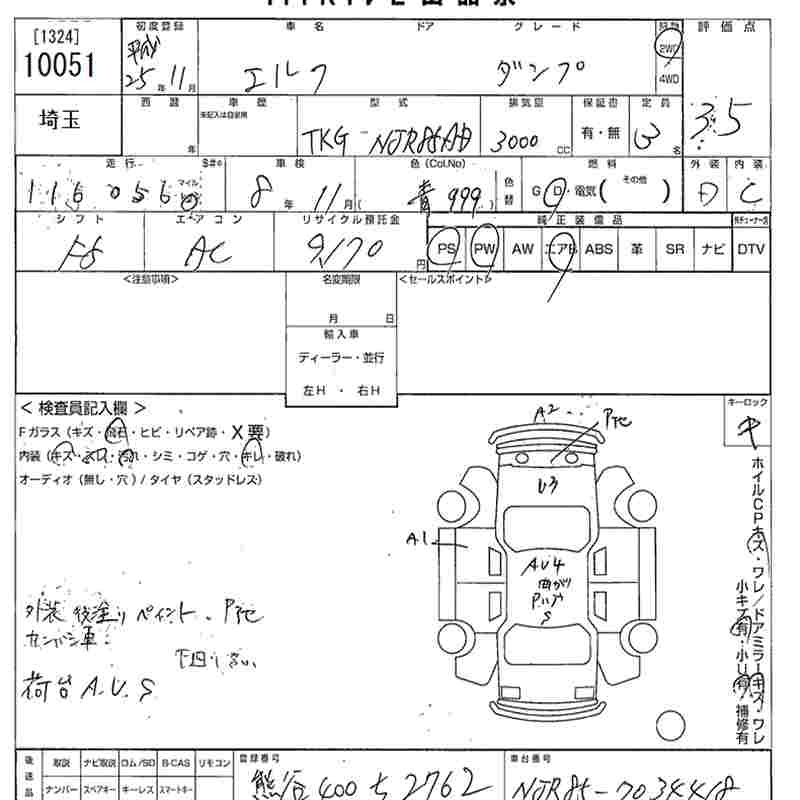 [1324]
10051
初度登録 車名 ドア グレード 評価点
平成 25年11月 エルフ ダンプ 2WD 4WD 3.5
埼玉
西暦 車歴 型式 排気量 保証書 定員
未記入は自家用
年 TKG-NJR85AD 3000cc 有・無 3名
走行 車検 色(Col.No) 燃料 外装 内装
116056 マイル 8年11月 青 999 色替 G・D・電気(その他) D C
シフト エアコン リサイクル預託金 純正装備品
F6 AC 9170円 PS PW AW エアB ABS 革 SR ナビ DTV
<注意事項> 名変期限 <セールスポイント>
月 日
輸入車
ディーラー・並行
左H・右H
<検査員記入欄> キーロック
キ
Fガラス(キズ・飛石・ヒビ・リペア跡・X要)
内装(キズ・スレ・汚れ・シミ・コゲ・穴・キレ・破れ)
オーディオ(無し・穴)/タイヤ(スタッドレス)
A2
U3
A1
AU4
曲がり
S
ホイルCPキズ・ワレ/ドアミラーキズ・ワレ
小キズ有・小U有・補修有
外装 後塗りペイント
車
下回りさび
荷台 A.U.S
後送品 取説 ナビ取説 ロム/SD B-CAS リモコン 登録番号 車台番号
ナンバー スペアキー キーレス スマートキー 熊谷 400 ち 2762 NJR85-7034418